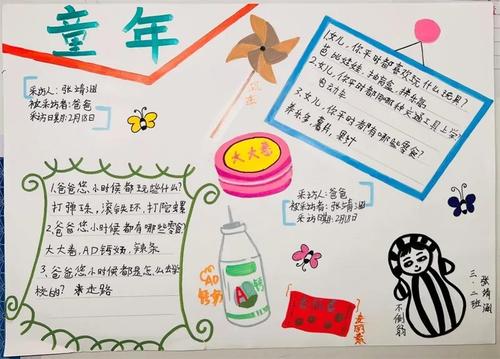 童年
采访人:张靖涵
被采访者:爸爸
采访日期:2月18日
1.爸爸您小时候都玩些什么?
打弹珠、滚铁环、打陀螺
2.爸爸您小时候都有哪些零食?
大大卷、AD钙奶、辣条
3、爸爸您小时候都是怎么去学
校的?来走路
风车
大大卷
1女儿,你平时都喜欢玩什么玩具?
芭比娃娃、抽盲盒、拼乐高
2.女儿,你平时都用哪种交通工具上学?
电动车
3.女儿,你平时都有哪些零食?
养乐多、薯片、果汁
采访人:爸爸
被采访者:张靖涵
采访日期:2月18日
AD
钙奶
AD钙
麦丽素
不倒翁
三.二班
张靖涵